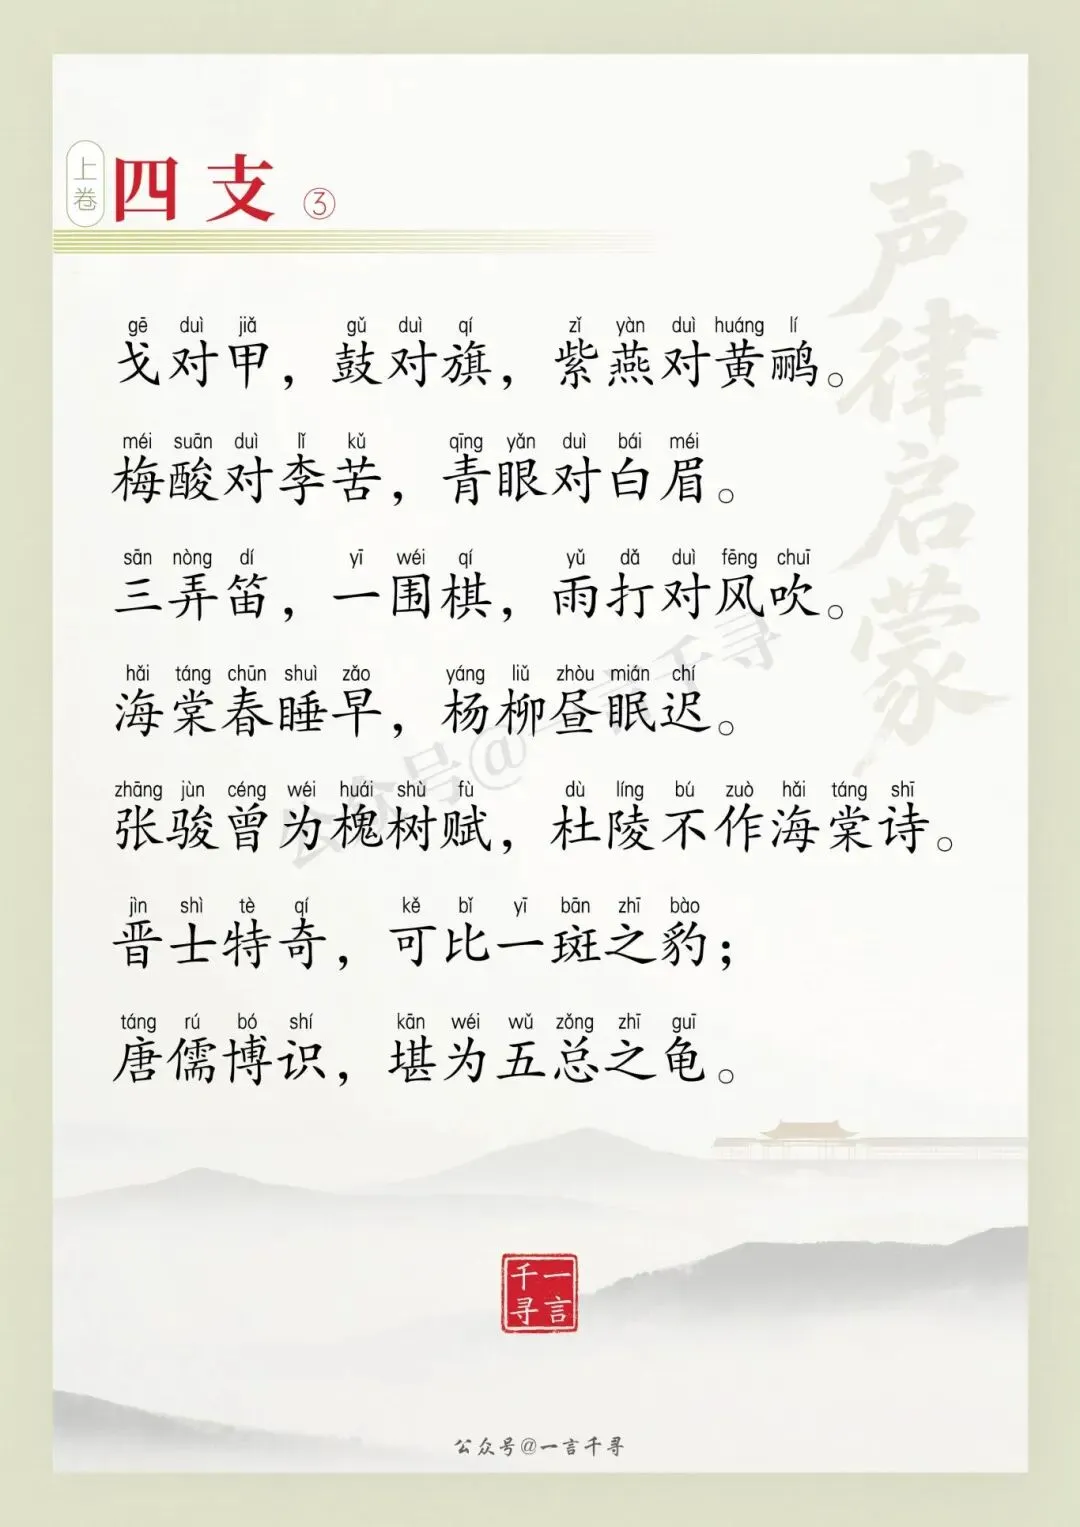 上卷
四支 ③
声律启蒙
gē duì jiǎ gǔ duì qí zǐ yàn duì huáng lí
戈对甲，鼓对旗，紫燕对黄鹂。
méi suān duì lǐ kǔ qīng yǎn duì bái méi
梅酸对李苦，青眼对白眉。
sān nòng dí yī wéi qí yǔ dǎ duì fēng chuī
三弄笛，一围棋，雨打对风吹。
hǎi táng chūn shuì zǎo yáng liǔ zhòu mián chí
海棠春睡早，杨柳昼眠迟。
zhāng jùn céng wéi huái shù fù dù líng bú zuò hǎi táng shī
张骏曾为槐树赋，杜陵不作海棠诗。
jìn shì tè qí kě bǐ yī bān zhī bào
晋士特奇，可比一斑之豹；
táng rú bó shí kān wéi wǔ zǒng zhī guī
唐儒博识，堪为五总之龟。
公众号@一言千寻
一言千寻
公众号@一言千寻